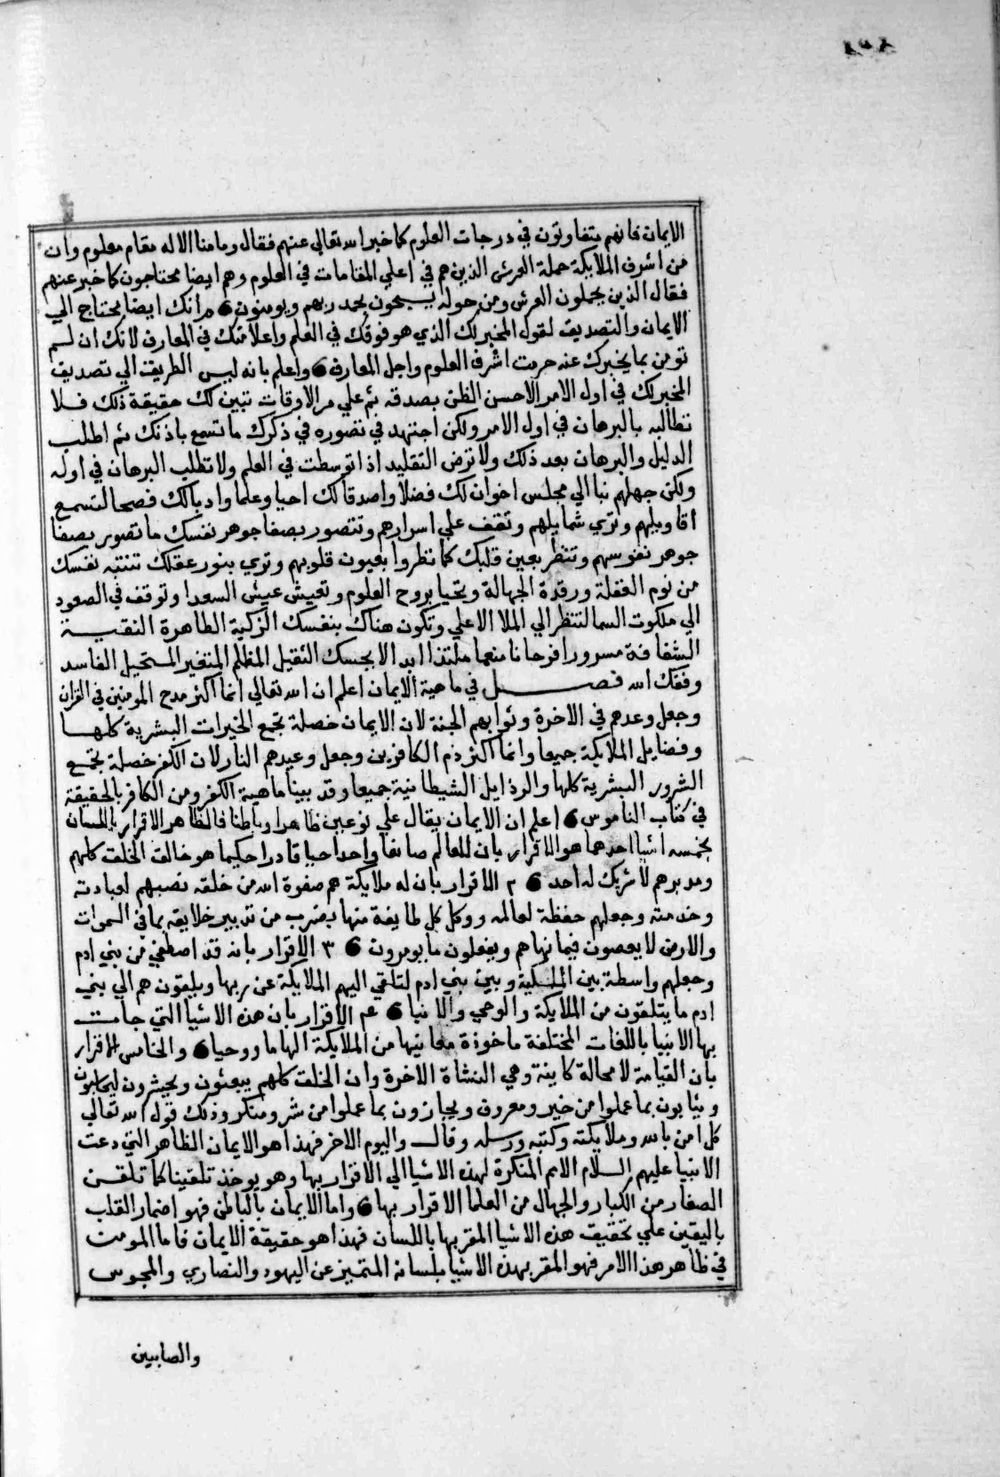 الايمان فانهم يتفاوتون في درجات العلوم كما خبر الله تعالي عنهم فقال وما منا الا له مقام معلوم وان
من اشرف الملايكة حملة العرش الذين هم في اعلي المقامات في العلوم وهم ايضا محتاجون كما خبر عنهم
فقال الذين يحملون العرش ومن حوله يسبحون بحمد ربهم ويومنون 6 وانك ايضا محتاج الي
الايمان والتصديق لقول المخبر لك الذي هو فوقك في العلم واعلا منك في المعارف لانك ان لم
تومن بما يخبرك عنه حرمت اشرف العلوم واجل المعارف 6 واعلم بانه ليس الطريق الي تصديق
المخبر لك في اول الامر الا حسن الظن بصدقه ثم علي مر الاوقات تبين لك حقيقة ذلك فلا
تطالبه بالبرهان في اول الامر ولكن اجتهد في تصوره في ذكرك ما تسمع باذنك ثم اطلب
الدليل والبرهان بعد ذلك ولا ترض التقليد اذا توسطت في العلم ولا تطلب البرهان في اوله
ولكن جهلهم نبا الي مجلس اخوان لك فضلا واصدقا لك احيا وعلما وادبا لك فصحا لتسمع
اقاويلهم وتري شمايلهم وتقف علي اسرارهم وتتصور بصفا جوهر نفسك ما تصوير بصفا
جوهر نفوسهم وتنظر بعين قلبك كما نظروا بعيون قلوبهم وتري بنور عقلك تنتبه نفسك
من نوم الغفلة ورقدة الجهالة وتحيا بروح العلوم وتعيش عيش السعدا وتوقف في الصعود
الي ملكوت السما لتنظر الي الملا الاعلي وتكون هناك بنفسك الزكية الطاهرة النقية
الشفافة مسرورا فرحانا منعما ملتذا ابدا لا بجسك الثقيل المظلم المتغير المستحيل الفاسد
وفقك الله فصل في ماهية الايمان اعلم ان الله تعالي انما اكثر مدح المومنين في القران
وجعل وعدهم في الاخرة وثوابهم الجنة لان الايمان خصلة تجمع الخيرات البشرية كلها
وفضايل الملايكة جميعا وانما اكثر ذم الكافرين وجعل وعيدهم النار لان الكفر خصلة تجمع
الشرور البشرية كلها والرذايل الشيطانية جميعا وقد بينا ماهية الكفر ومن الكافر بالحقيقة
في كتاب الناموس 6 اعلم ان الايمان يقال علي نوعين ظاهرا وباطنا فالظاهر الاقرار باللسان
بخمسه اشيا احدهما هو الاقرار بان للعالم صانعا واحدا حيا قادرا حكيما هو خالق الخلق كلهم
ومدبرهم لا شريك له احد 6 ٢ الاقرار بان له ملايكة هم صفوة الله من خلقه نصبهم لعبادته
وخدمته وجعلهم حفظة لعالمه ووكل كل طايفة منها بضرب من تدبير خلايقه بما في السموات
والارض لا يعصون فيما نهاهم ويفعلون ما يومرون 6 ٣ الاقرار بانه قد اصطفي من بني ادم
وجعلهم واسطة بين الملايكة وبين بني ادم لتلقي اليهم الملايكة عن ربها ويلقون هم الي بني
ادم ما يتلقون من الملايكة والوحي والانبا 6 ع الاقرار بان هذه الاشيا التي جات
بها الانبيا باللغات المختلفة ماخوذة معانيها من الملايكة الهاما ووحيا 6 والخامس الاقرار
بان القيامة لا محالة كاينة وهي النشاة الاخرة وان الخلق كلهم يبعثون ويحشرون ليحاسبون
ويثابون بما عملوا من خير ومعروف ويجازون بما عملوا من شر ومنكر وذلك قول الله تعالي
كل امن بالله وملايكته وكتبه ورسله وقال واليوم الاخر فهذا هو الايمان الظاهر التي دعت
الانبيا عليهم السلام الامم المنكرة لهذه الاشيا الي الاقرار بها وهو يوخذ تلقينا كما تلقن
الصغار من الكبار والجهال من العلما الاقرار بها 6 واما الايمان بالباطن فهو اضمار القلب
باليقين علي تحقيق هذه الاشيا المقر بها باللسان فهذا هو حقيقة الايمان فاما المومن
في ظاهر هذا الامر فهو المقر بهذه الاشيا بلسانه المتميز عن اليهود والنصاري والمجوس
والصابين